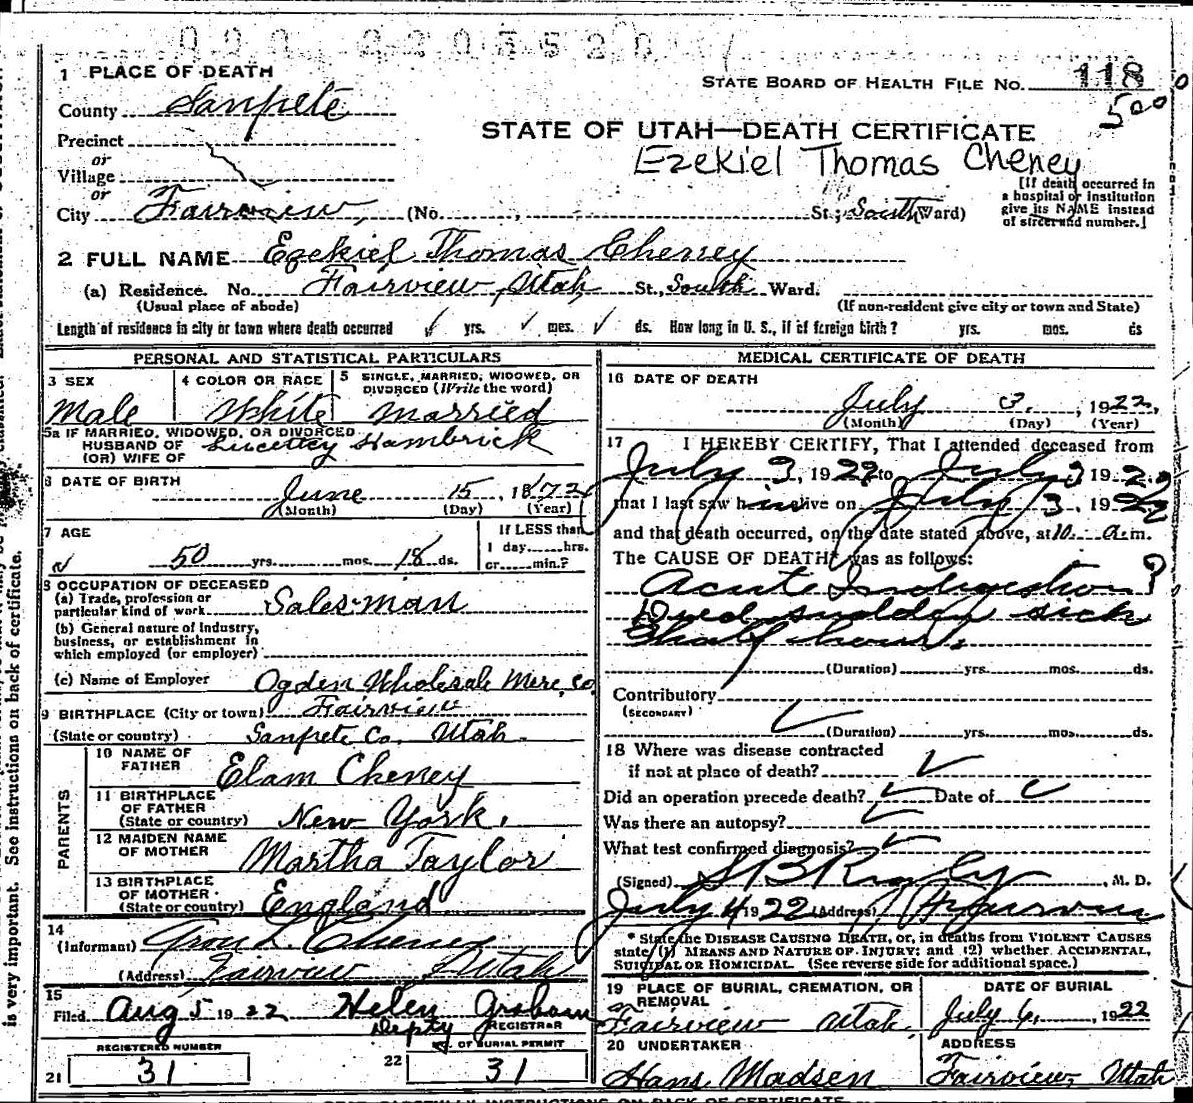 1 PLACE OF DEATH
STATE BOARD OF HEALTH FILE NO. 118
500
County Sanpete
STATE OF UTAH—DEATH CERTIFICATE
Precinct
or
Ezekiel Thomas Cheney
Village
or
[If death occurred in a hospital or institution give its NAME instead of street and number.]
City Fairview, (No. , St; South Ward)
2 FULL NAME Ezekiel Thomas Cheney
(a) Residence. No. Fairview, Utah St., South Ward.
(Usual place of abode) (If non-resident give city or town and State)
Length of residence in city or town where death occurred ✓ yrs. ✓ mos. ✓ ds. How long in U. S., if of foreign birth? yrs. mos. ds
PERSONAL AND STATISTICAL PARTICULARS
3 SEX
Male
4 COLOR OR RACE
White
5 SINGLE, MARRIED, WIDOWED, OR DIVORCED (Write the word)
Married
5a IF MARRIED, WIDOWED, OR DIVORCED
HUSBAND OF
(OR) WIFE OF
Hambrick
6 DATE OF BIRTH
June 15, 1872
(Month) (Day) (Year)
7 AGE
50 yrs. mos. 18 ds.
If LESS than
1 day hrs.
or min.?
8 OCCUPATION OF DECEASED
(a) Trade, profession or
particular kind of work Salesman
(b) General nature of Industry,
business, or establishment in
which employed (or employer)
(c) Name of Employer Ogden Wholesale Merc. Co.
9 BIRTHPLACE (City or town) Fairview
(State or country) Sanpete Co. Utah.
PARENTS
10 NAME OF
FATHER Elam Cheney
11 BIRTHPLACE
OF FATHER
(State or country) New York.
12 MAIDEN NAME
OF MOTHER Martha Taylor
13 BIRTHPLACE
OF MOTHER
(State or country) England
14
(Informant) Cheney
(Address) Fairview Utah
15
Filed Aug 5 1922 Helen Graham
Depty REGISTRAR
REGISTERED NUMBER
21 31
OF BURIAL PERMIT
22 31
MEDICAL CERTIFICATE OF DEATH
16 DATE OF DEATH
July 3, 1922.
(Month) (Day) (Year)
17 I HEREBY CERTIFY, That I attended deceased from
July 3, 1922 to July 3 1922
that I last saw him alive on July 3, 1922
and that death occurred, on the date stated above, at 10 a.m.
The CAUSE OF DEATH* was as follows:
Acute Indigestion?
Died sudden sick
half hour.
(Duration) yrs. mos. ds.
Contributory
(SECONDARY)
(Duration) yrs. mos. ds.
18 Where was disease contracted
if not at place of death? ✓
Did an operation precede death? ✓ Date of
Was there an autopsy? ✓
What test confirmed diagnosis? ✓
(Signed) S B Rigby, M. D.
July 4 1922 (Address) Fairview
* State the DISEASE CAUSING DEATH, or, in deaths from VIOLENT CAUSES
state (1) MEANS AND NATURE OF INJURY; and (2) whether ACCIDENTAL,
SUICIDAL OR HOMICIDAL. (See reverse side for additional space.)
19 PLACE OF BURIAL, CREMATION, OR
REMOVAL
Fairview Utah.
DATE OF BURIAL
July 6, 1922
20 UNDERTAKER
Hans Madsen
ADDRESS
Fairview, Utah
is very important. See instructions on back of certificate.